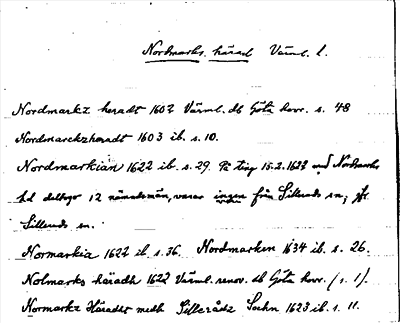 Nordmarks härad Värml. l.
Nordmarkz heradt 1602 Värml. db Göta hovr. s. 48
Nordmarckzheradt 1603 ib. s. 10.
Nordmarkian 1622 ib. s. 29. På ting 15.2.1622 med Nordmarks
hd deltogo 12 nämndemän, varav ingen från Silleruds sn; jfr
Silleruds sn.
Normarkia 1622 ib. s. 36. Nordmarken 1634 ib. s. 26.
Nolmarks häradh 1622 Värml. renov. db Göta hovr. (s. 1).
Normarkz Häradtz medh Sillerådz Sochn 1623 ib. s. 11.